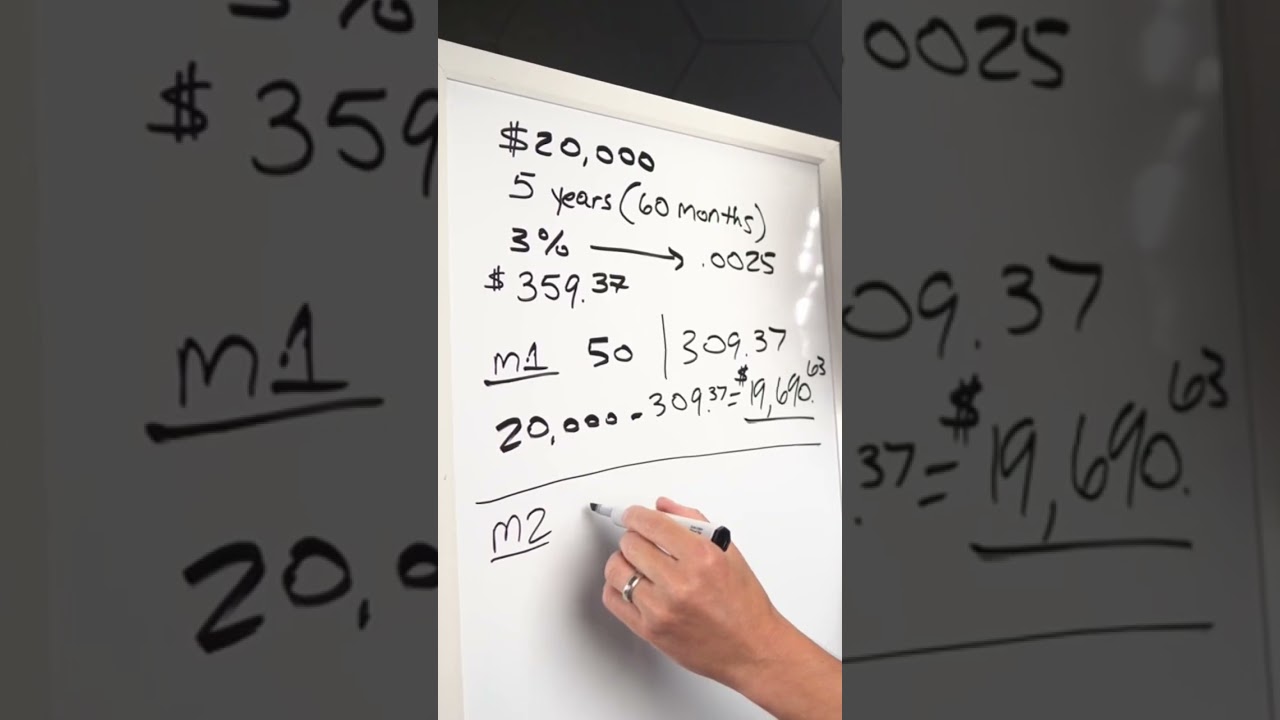 $20,000
5 years (60 months)
3% → .0025
$359.37
m1 50 | 309.37
20,000 - 309.37 = $19,690.63
m2